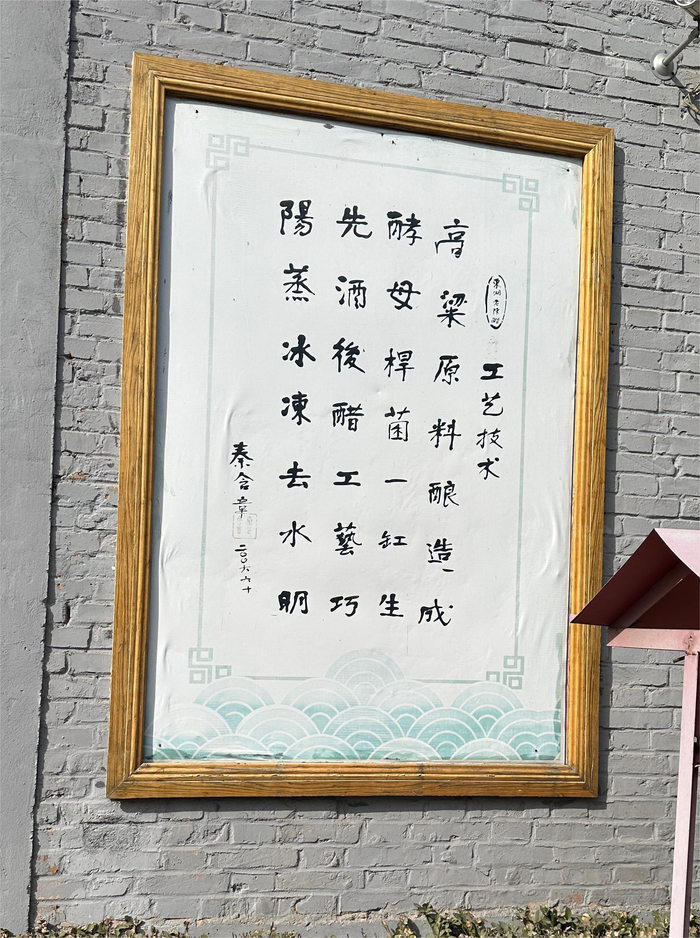 東湖老陳醋
工艺技术
高粱原料酿造成
酵母桿菌一缸生
先酒後醋工藝巧
陽蒸冰凍去水明
秦含章
二〇〇六六十